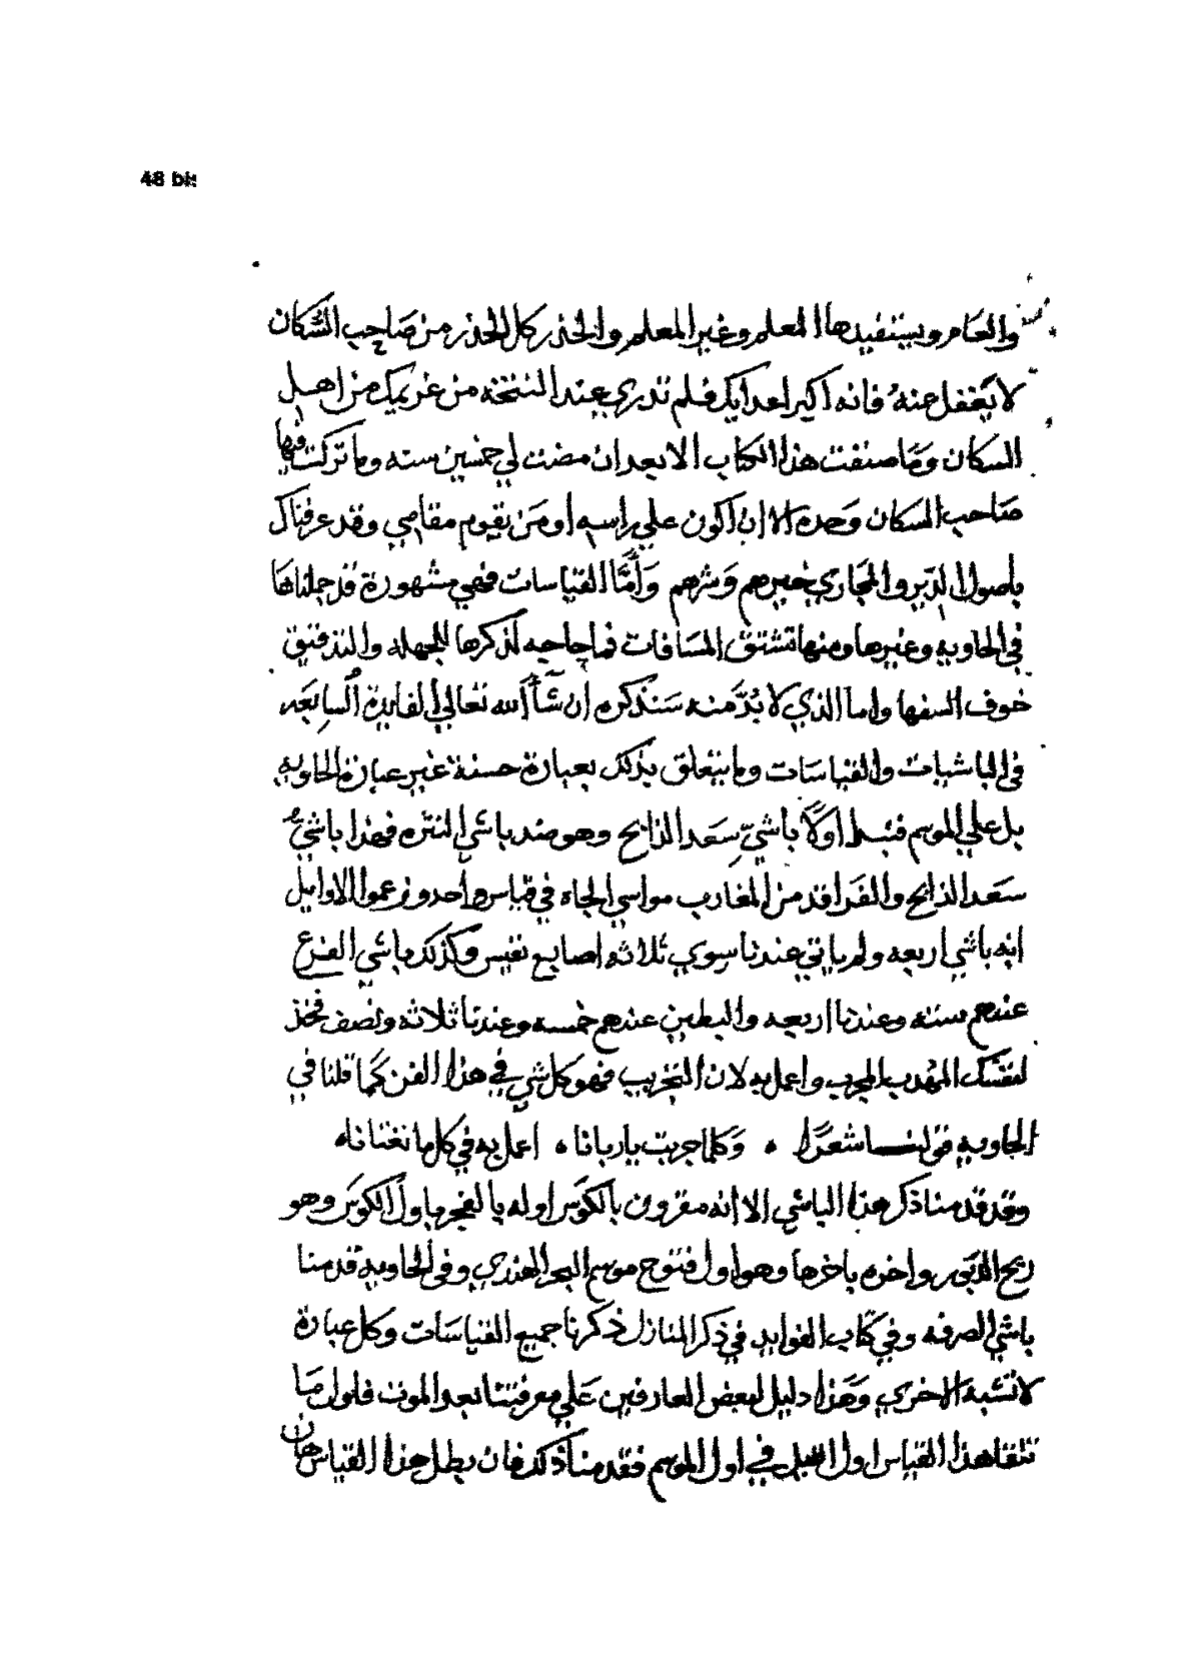 48 bis
والعام ويستفيدها المعلم وغير المعلم والحذر كل الحذر من صاحب السكان
لا يغفل عنه فانه اكبر اعدايك فلم تدري عند النتخه من غريمك من اهل
السكان وما صنفت هذا الكتاب الا بعد ان مضت لي خمسين سنه وما تركت فيها
صاحب السكان وحده الا ان اكون علي راسه او من يقوم مقامي وقد عرفناك
باصول الدير والمجاري خيرهم وشرهم وأما القياسات فهي مشهورة قد جملناها
في الحاويه وغيرها ومنها تشتق المسافات فما حاجه لذكرها للجهله والتدقيق
خوف السفها واما الذي لا بد منه سنذكره ان شآ الله تعالي الفايدة السابعه
في الباشيات والقياسات وما يتعلق بذلك بعبارة حسنة غير عبارة الحاويه
بل علي الموسم فنبدا اولا باشي سعد الذابح وهو ضد باشي النثره فهذا باشي
سعد الذابح والفراقد من المغارب مواسي الجاه في قياس واحد وزعموا الاوايل
انه باشي اربعه ولم ياتي عندنا سوي ثلاثه اصابع نفيس وكذلك باشي الفرغ
عندهم سته وعندنا اربعه والبطين عندهم خمسه وعندنا ثلاثه ونصف فخذ
لنفسك المهدب المجرب واعمل به لان التجريب فهو كل شي في هذا الفن كما قلنا في
الحاويه قولنا شعرًا ، وكلما جربت يا ربانا ، اعمل به في كل ما تغتانا ،
وقد قدمنا ذكر هذا الباشي الا انه مقرون بالكوس اوله بالفجر باول الكوس وهو
ريح الدبور واخره باخرها وهو اول فتوح موسم البحر الهندي وفي الحاوية قدمنا
باشي الصرفه وفي كتاب الفوايد في ذكر المنازل ذكرنا جميع القياسات وكل عبارة
لا تشبه الاخري وهذا دليل لبعض العارفين علي معرفتنا بعد الموت فاول ما
تلقا هذا القياس اول الليل في اول الموسم فقد منا ذلك فان بطل هذا القياس حان